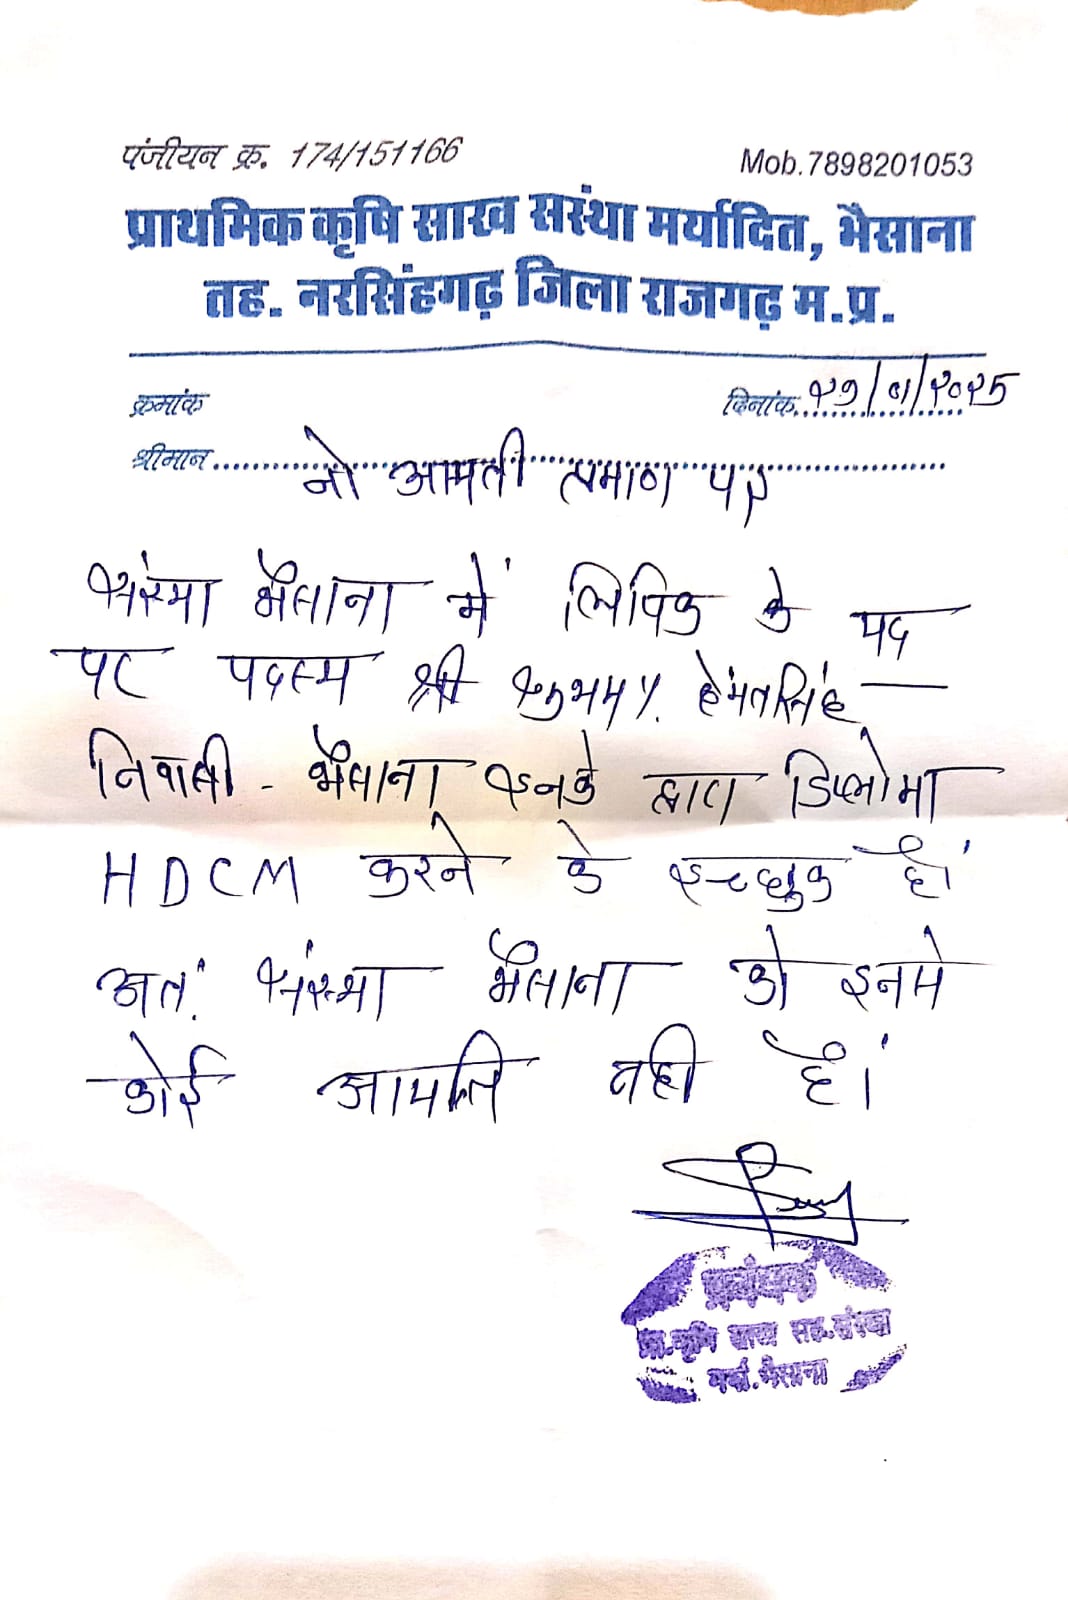 पंजीयन क्र. 174/151166
Mob.7898201053
प्राथमिक कृषि साख संस्था मर्यादित, भैसाना
तह. नरसिंहगढ़ जिला राजगढ़ म.प्र.
क्रमांक
दिनांक २७/०१/२०२५
श्रीमान
नो आपती प्रमाण पत्र
संस्था भैसाना में लिपिक के पद
पर पदस्थ श्री शुभम s/ हेमंतसिंह
निवासी - भैसाना इनके द्वारा डिप्लोमा
HDCM करने के इच्छुक है।
अत: संस्था भैसाना को इनसे
कोई आपत्ति नही है।
प्रबंधक
प्रा.कृषि साख सह.संस्था
मर्या.भैसाना